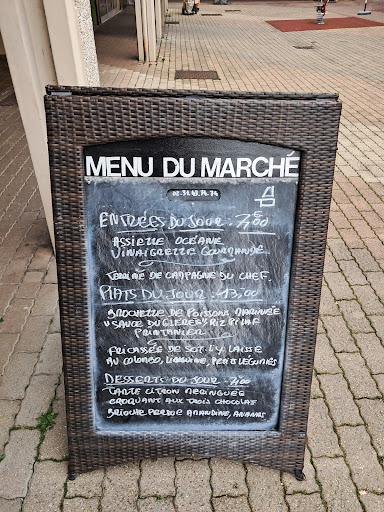 MENU DU MARCHÉ
ENTRÉES DU JOUR
ASSIETTE OCÉANE
VINAIGRETTE GOURMANDE
TERRINE DE CAMPAGNE DU CHEF
PLATS DU JOUR . 13,00
BROCHETTE DE POISSONS MARINÉE
SAUCE RIZ PILAF
PRINTANIER
FRICASSÉE DE SOT L'Y LAISSE
AU COLOMBO, LINGUINE, PETITS LÉGUMES
DESSERTS DU JOUR . 7,00
TARTE CITRON MERINGUÉE
CROQUANT AUX TROIS CHOCOLAT
BRIOCHE PERDUE AMANDINE, ANANAS